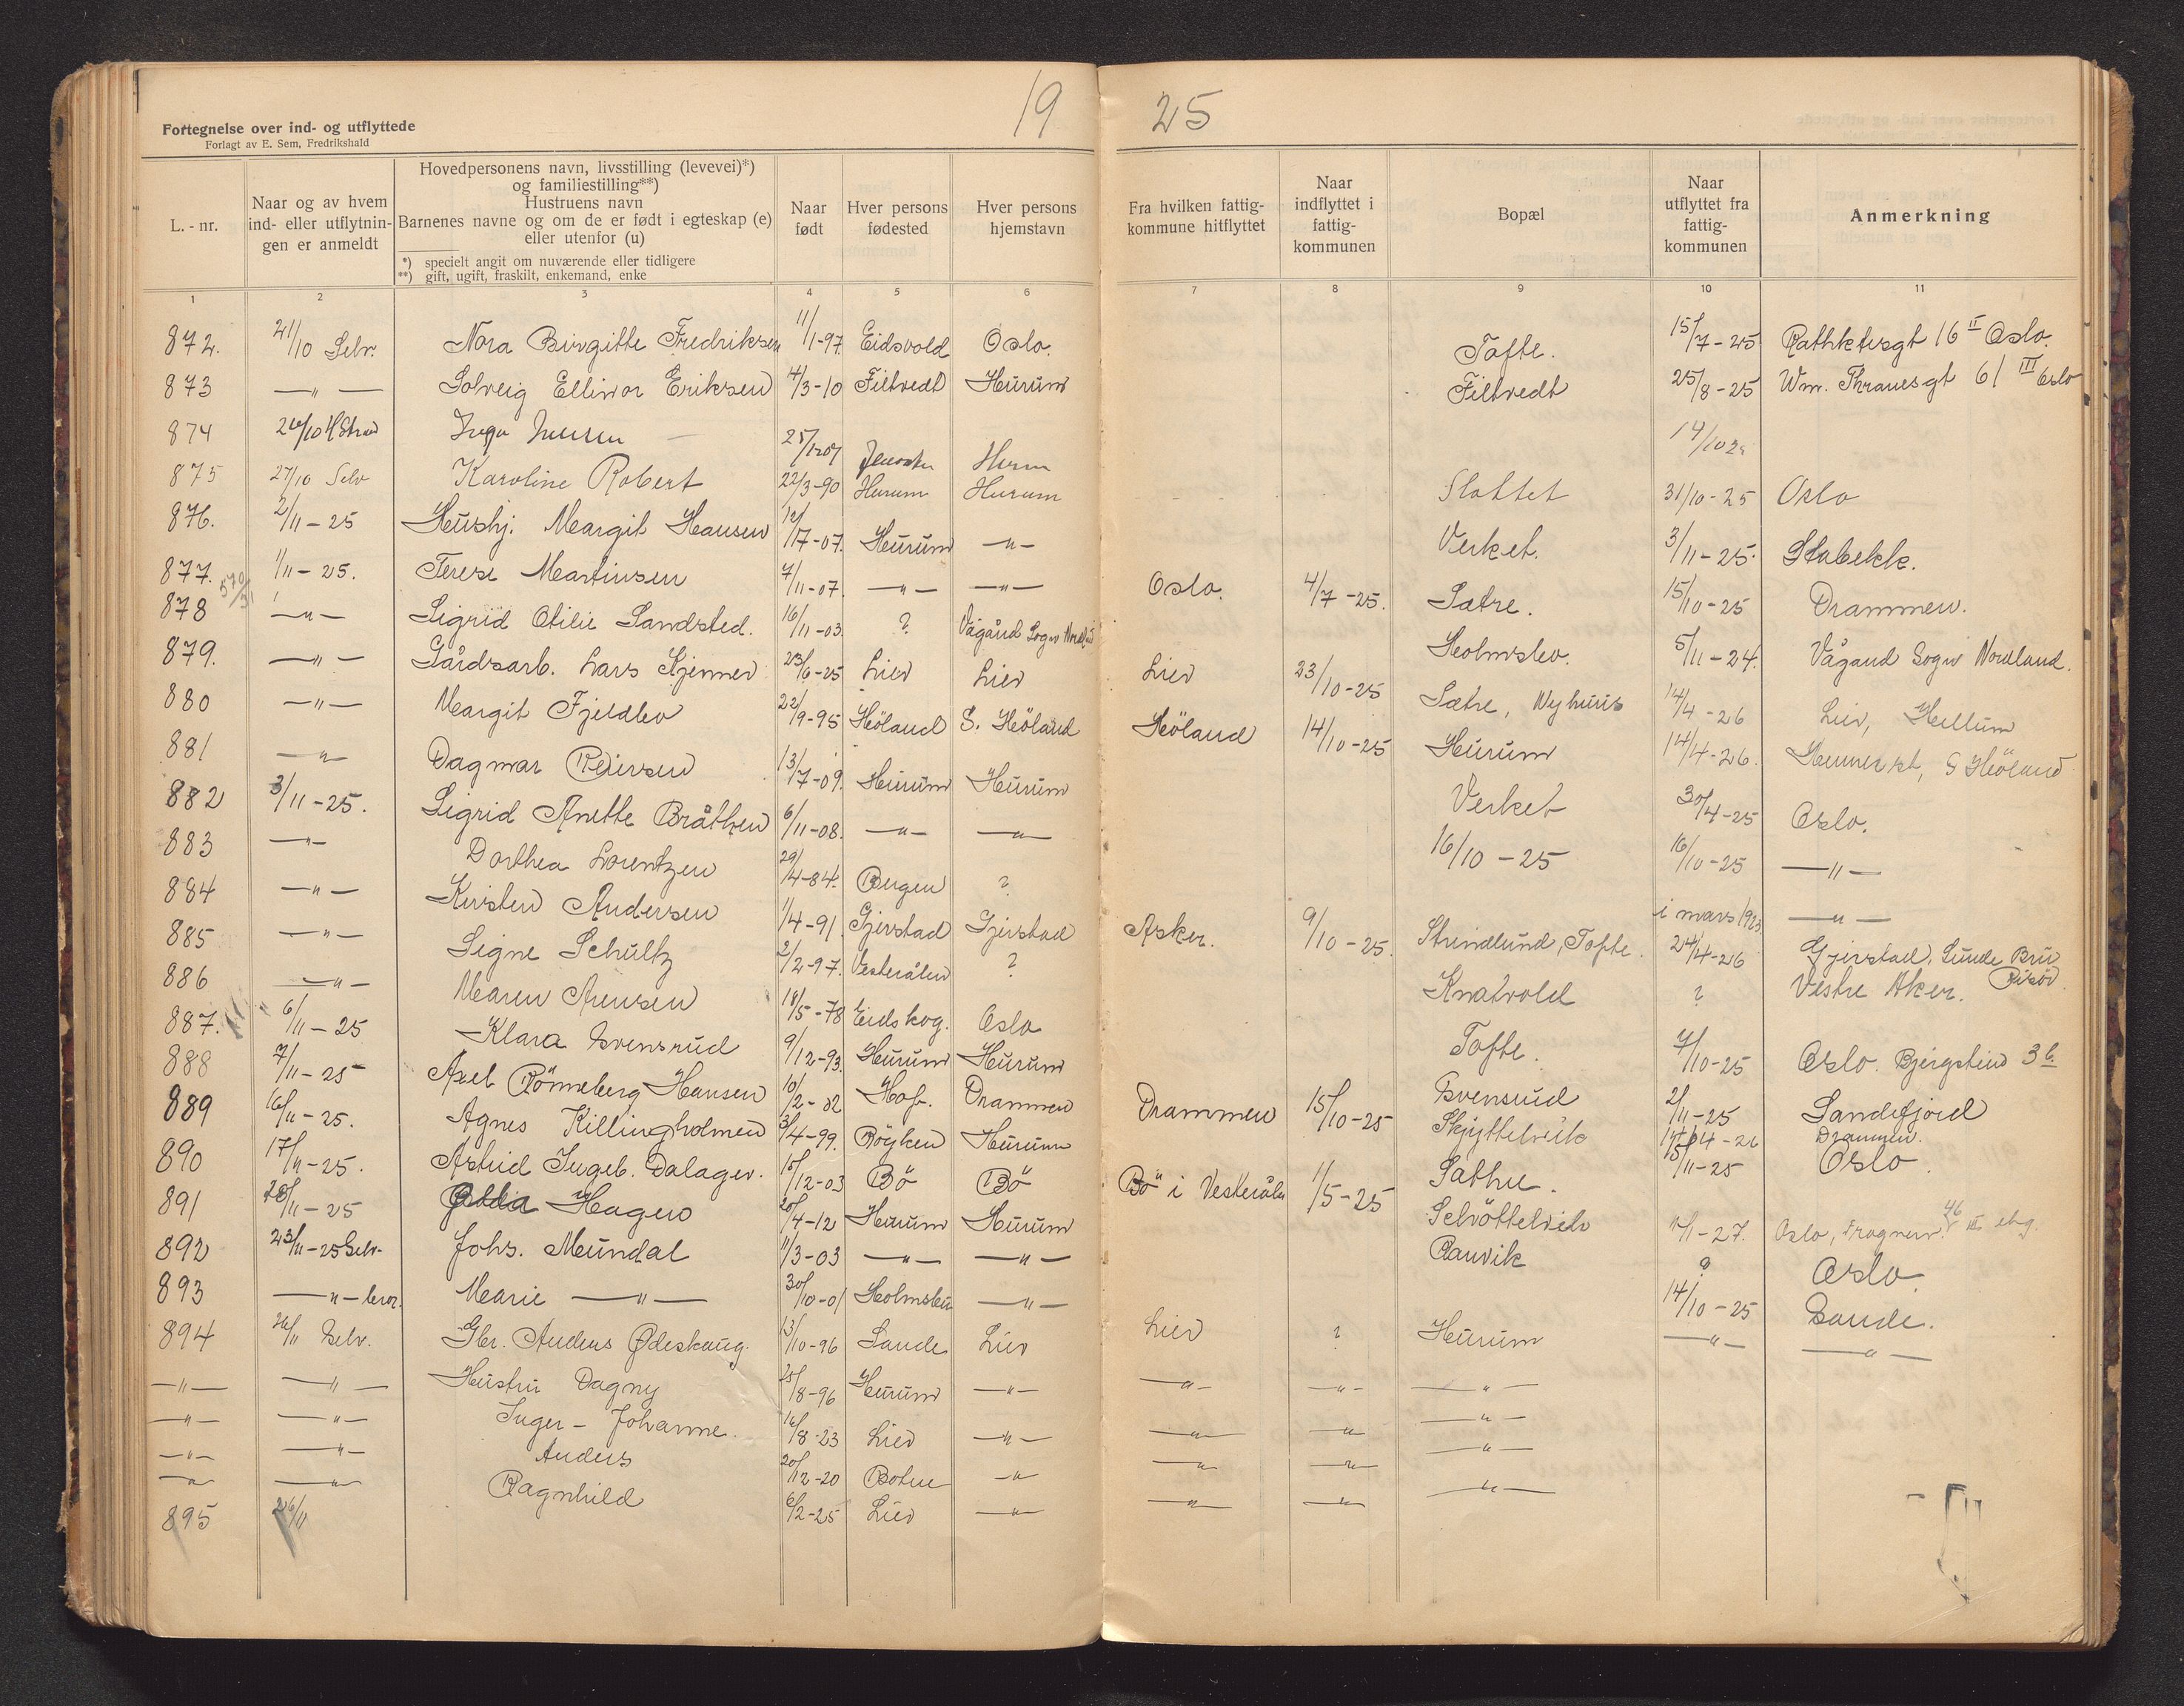 19 25
Fortegnelse over ind- og utflyttede
Forlagt av E. Sem, Fredrikshald
L. - nr.
Naar og av hvem
ind- eller utflytnin-
gen er anmeldt
Hovedpersonens navn, livsstilling (levevei)*)
og familiestilling**)
Hustruens navn
Barnenes navne og om de er født i egteskap (e)
eller utenfor (u)
*) specielt angit om nuværende eller tidligere
**) gift, ugift, fraskilt, enkemand, enke
Naar
født
Hver persons
fødested
Hver persons
hjemstavn
Fra hvilken fattig-
kommune hitflyttet
Naar
indflyttet i
fattig-
kommunen
Bopæl
Naar
utflyttet fra
fattig-
kommunen
Anmerkning
1 2 3 4 5 6 7 8 9 10 11
872. 21/10 Selv. Nora Birgitte Fredriksen 11/1-97. Eidsvold Oslo. Tofte. 15/7-25 16 II Oslo.
873 — " — Solveig Ellinor Eriksen 4/3-10 Filtvedt Hurum Filtvedt 25/8-25 Wm. Thranesgt 61 III Oslo
874 26/10 Inga Jensen 14/10 25
875 27/10 Selv Karoline Robert 22/3-90 Hurum Hurum Slottet 31/10-25 Oslo
876. 2/11-25 Hushj. Margit Hansen 12/7-07. Hurum — " — Verket. 3/11-25. Stabekk.
877. 570/31 1/11-25. Terese Martinsen 7/11-07. — " — — " — Oslo. 4/7-25. Sætre. 15/10-25 Drammen.
878 — " — Sigrid Otilie Sandsted. 16/11-03. ? Vågånd Sogn Holmsbo. 5/11-24. Vågand Sogn Nordland.
879. — " — Gårdsarb. Lars Kjenner 23/6-25 Lier Lier Lier 23/10-25 Sætre, Nyhuus 14/4-26 Lier, Hellum
880 — " — Margit Fjeldbo 22/9-95 Höland S. Höland Höland 14/10-25 Hurum 14/4-26. S Höland
881 — " — Dagmar Reiersen 13/7-09. Hurum Hurum Verket 30/4-25 Oslo.
882 3/11-25. Sigrid Anette Bråthen 6/11-08. — " — — " — 16/10-25 16/10-25 — " —
883 — " — Dorthea Lorentzen 29/4-84. Bergen ? i mars — " —
884 — " — Kirsten Andersen 1/4-91. Gjerstad Gjerstad Asker. 9/10-25. Strindlund, Tofte. 24/4-26 Gjerstad, Sunde Bru Risör.
885 — " — Signe Schultz 2/2-97. Vesterålen ? Knatvold ? Vestre Aker.
886 — " — Maren Arensen 18/5-78 Eidskog. Oslo Tofte. 7/10-25 Oslo. 3 b.
887. 6/11-25 Klara Svensrud 9/12-93. Hurum Hurum Svensrud 2/11-25 Sandefjord
888 7/11-25 Axel Rönneberg Hansen 10/2-02 Hof. Drammen Drammen 15/10-25 Skjøttelvik 4-26 Drammen.
889 16/11-25. Agnes Killingholmen 3/4-99. Röyken Hurum Sathre. 15/11-25 Oslo.
890 17/11-25. Astrid Ingeb. Dalager. 18/12-03 Bö Bö Bö i Vesterålen 1/5-25 Oslo, 46 III
891 20/11-25 Hagen 20/4-12 Hurum Hurum Ranvik ? Oslo
892 23/11-25 Selv. Johs. Mundal 11/3-03 — " — — " — 14/10-25 Sande.
893 — " — Marie — " — 30/10-01 Holmsbu — " — — " — — " —
894 26/11 Selv. Gbr. Anders Ødeskaug. 13/10-96 Sande Lier Lier ? Hurum
— " — — " — Hustru Dagny 25/8-96 Hurum — " — — " — — " — — " —
— " — — " — Inger-Johanne. 16/8-23 Lier — " — — " — — " — — " —
— " — — " — Anders 20/12-20 Botne — " — — " — — " — — " —
— " — — " — Ragnhild 6/2-25 Lier — " — — " — — " — — " —
895 26/11